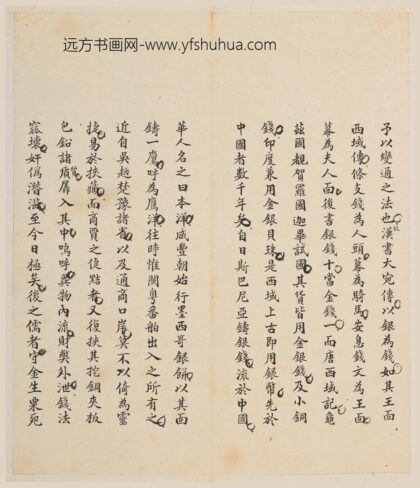 远方书画网-www.yfshuhua.com
予以變通之法也漢書大宛傳以銀為錢如其王面
西域傳條支錢為人頭幕為騎馬安息錢文為王面
幕為夫人面後書銀錢十當金錢一而唐西域記龜
茲國覩貨羅國迦畢試國其貨皆用金銀錢及小銅
錢印度兼用金銀貝珠是西域上古即用銀幣先於
中國者數千年矣自日斯巴尼亞鑄銀錢流於中國
華人名之曰本洋咸豐朝始行墨西哥銀餅以其面
鑄一鷹呼為鷹洋往時惟閩粵番舶出入之所有之
近自吳越楚豫諸省以及通商口岸莫不以倚為靈
捷易於挾攜而商賈之侵黠者又復挾其挖銅夾板
包鉛諸贋羼入其中嗚呼異物內流財弊外泄錢法
窳壞奸偽潛滋至今日極矣後之儒者守金生粟死